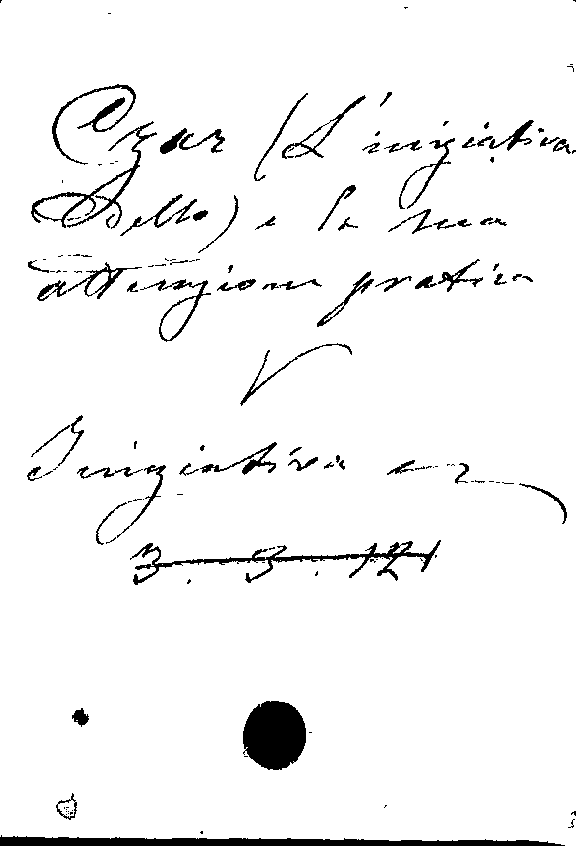 Czar (L'iniziativa
dello) e la sua
attenzione pratica
V
Iniziativa ecc
3. 3. 121